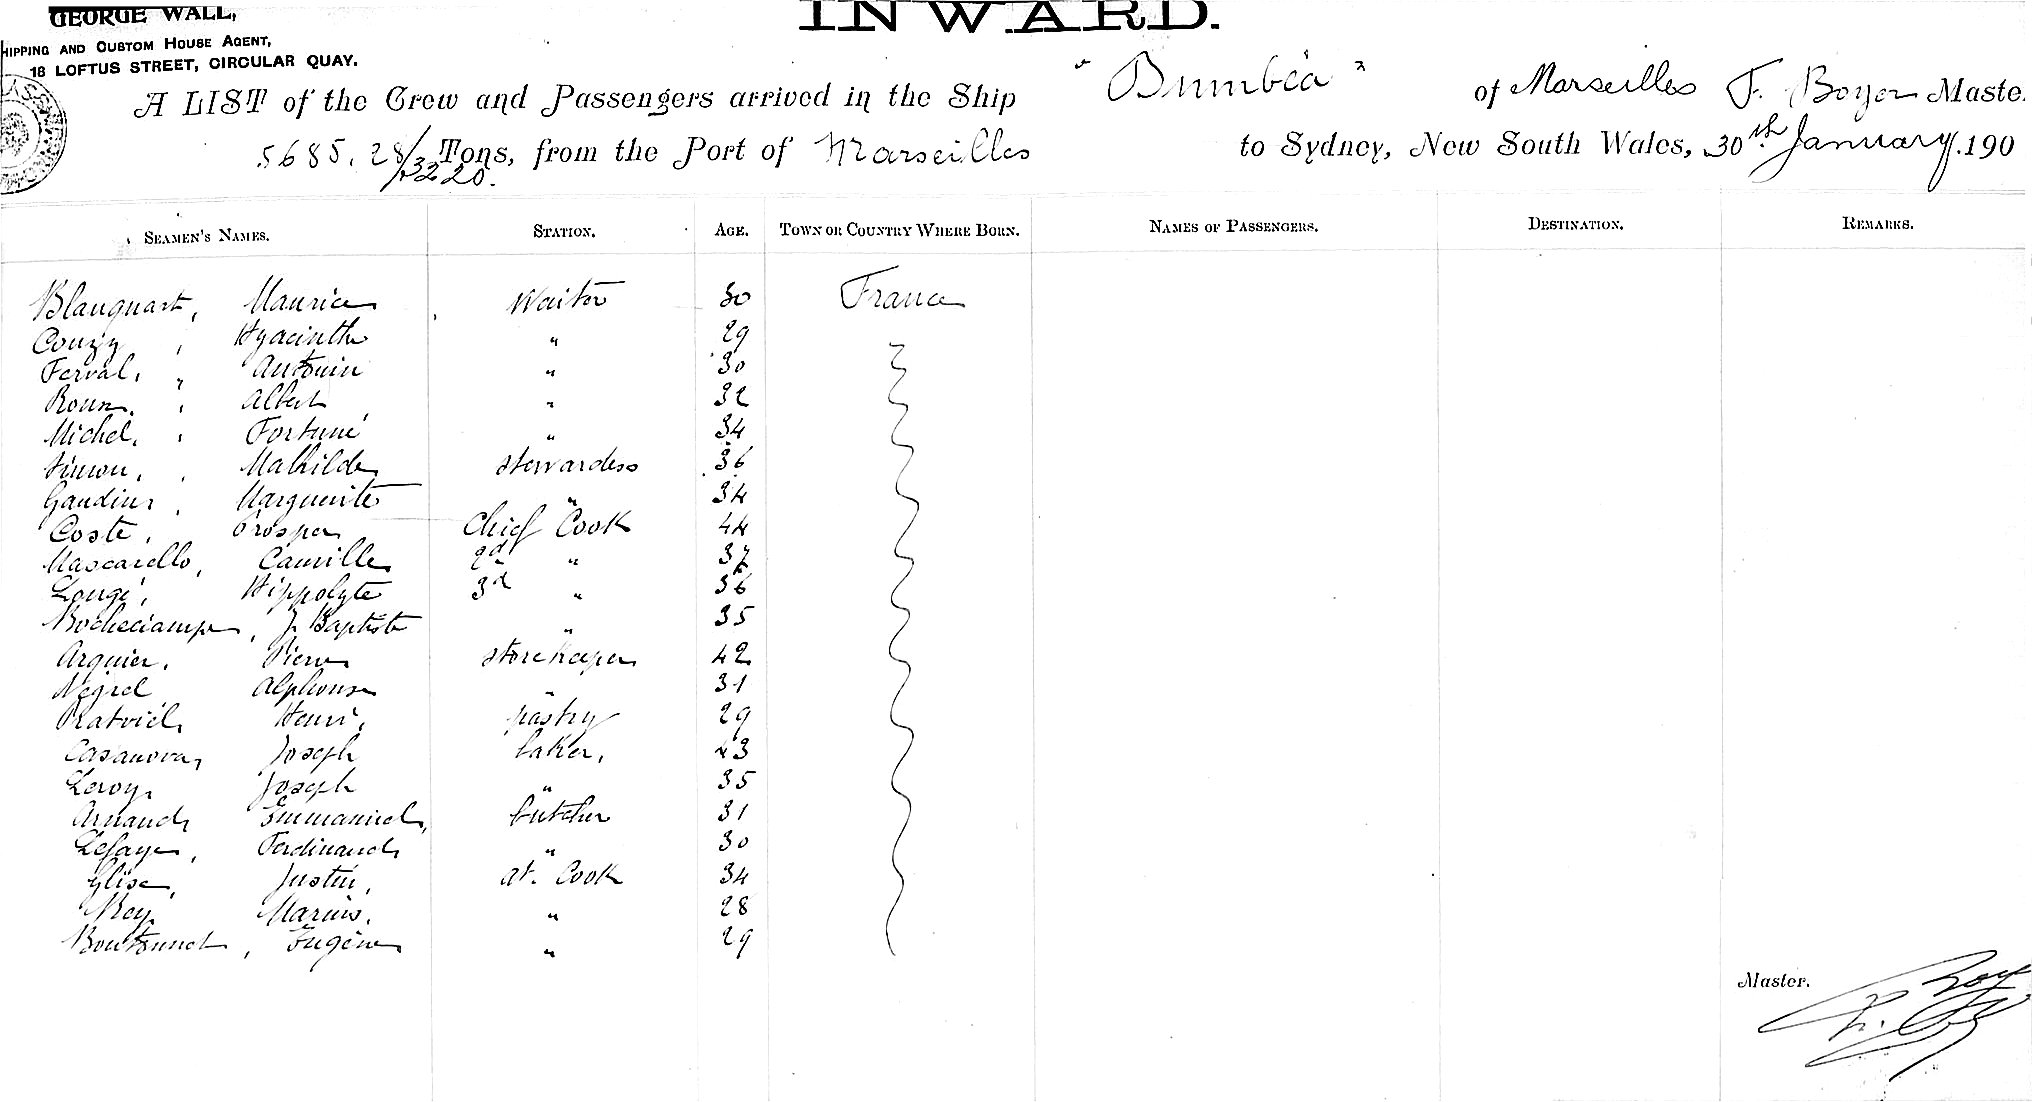 GEORGE WALL,
HIPPING AND CUSTOM HOUSE AGENT,
18 LOFTUS STREET, CIRCULAR QUAY.
INWARD.
A LIST of the Crew and Passengers arrived in the Ship "Dumbéa" of Marseilles F. Boyer Maste
5685. 28/ Tons, from the Port of Marseilles to Sydney, New South Wales, 30th January. 190
SEAMEN'S NAMES. STATION. AGE. TOWN OR COUNTRY WHERE BORN. NAMES OF PASSENGERS. DESTINATION. REMARKS.
Blanquart, Maurice Waiter 30 France
Couzy, Hyacinthe " 29
Ferval, Antonin " 30
Roux, Albert " 32
Michel, Fortuné " 34
Simon, Mathilde stewardess 36
Gaudin, Marguerite " 34
Coste, Prosper Chief Cook 44
Mascarello, Camille 2d " 37
Longé, Hippolyte 3d " 36
J. Baptiste " 35
Arquier, Pierre storekeeper 42
Négrel Alphonse " 31
Henri, pastry 29
Casanova, Joseph baker, 43
Leroy, Joseph " 35
Arnaud, Emmanuel, butcher 31
Lefaye, Ferdinand " 30
Glise, Justin, at. Cook 34
Rey, Marius, " 28
Boutonnet, Eugène " 29
Master.